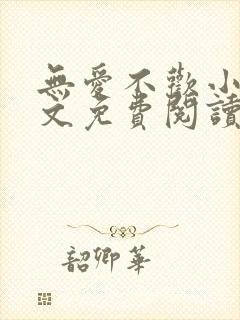 無愛不歡小
文免費閱讀
韶卿華